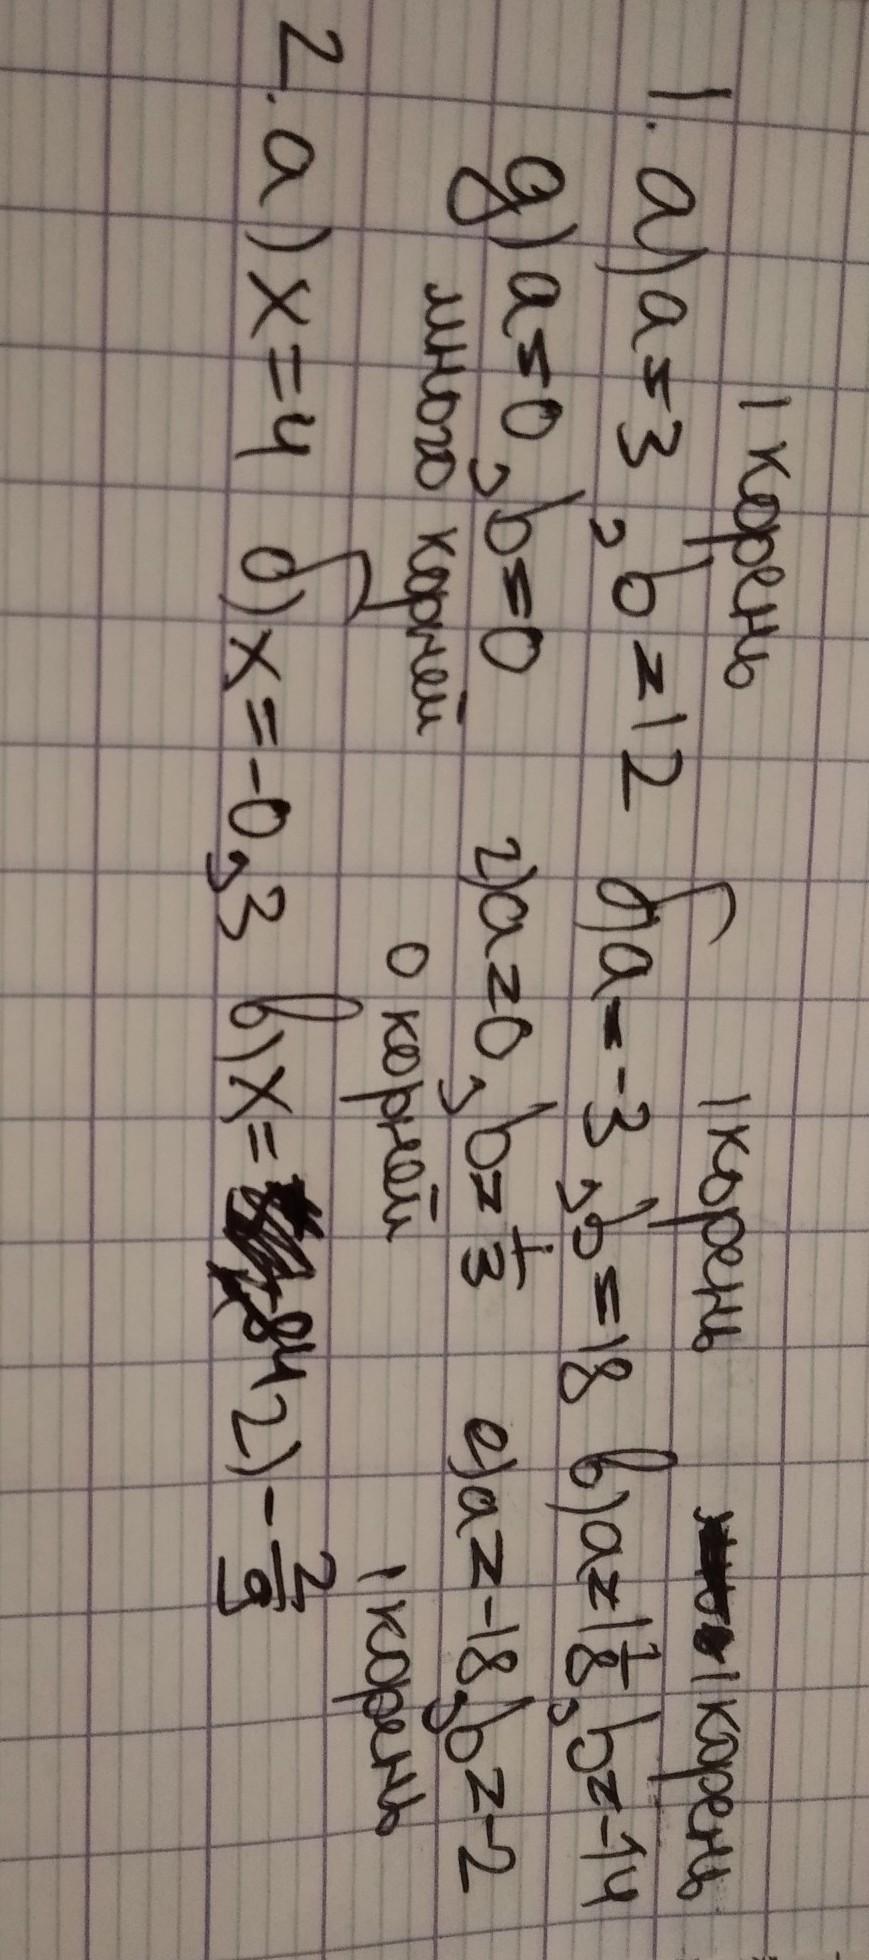 1 корень 1 корень 1 корень
1. а) a=3, b=12 б) a=-3, b=18 в) a=1 1/8, b=-14
д) a=0, b=0 г) a=0, b=1/3 е) a=-18, b=-2
много корней 0 корней 1 корень
2. а) x=4 б) x=-0,3 в) x=-84 г) -2/9